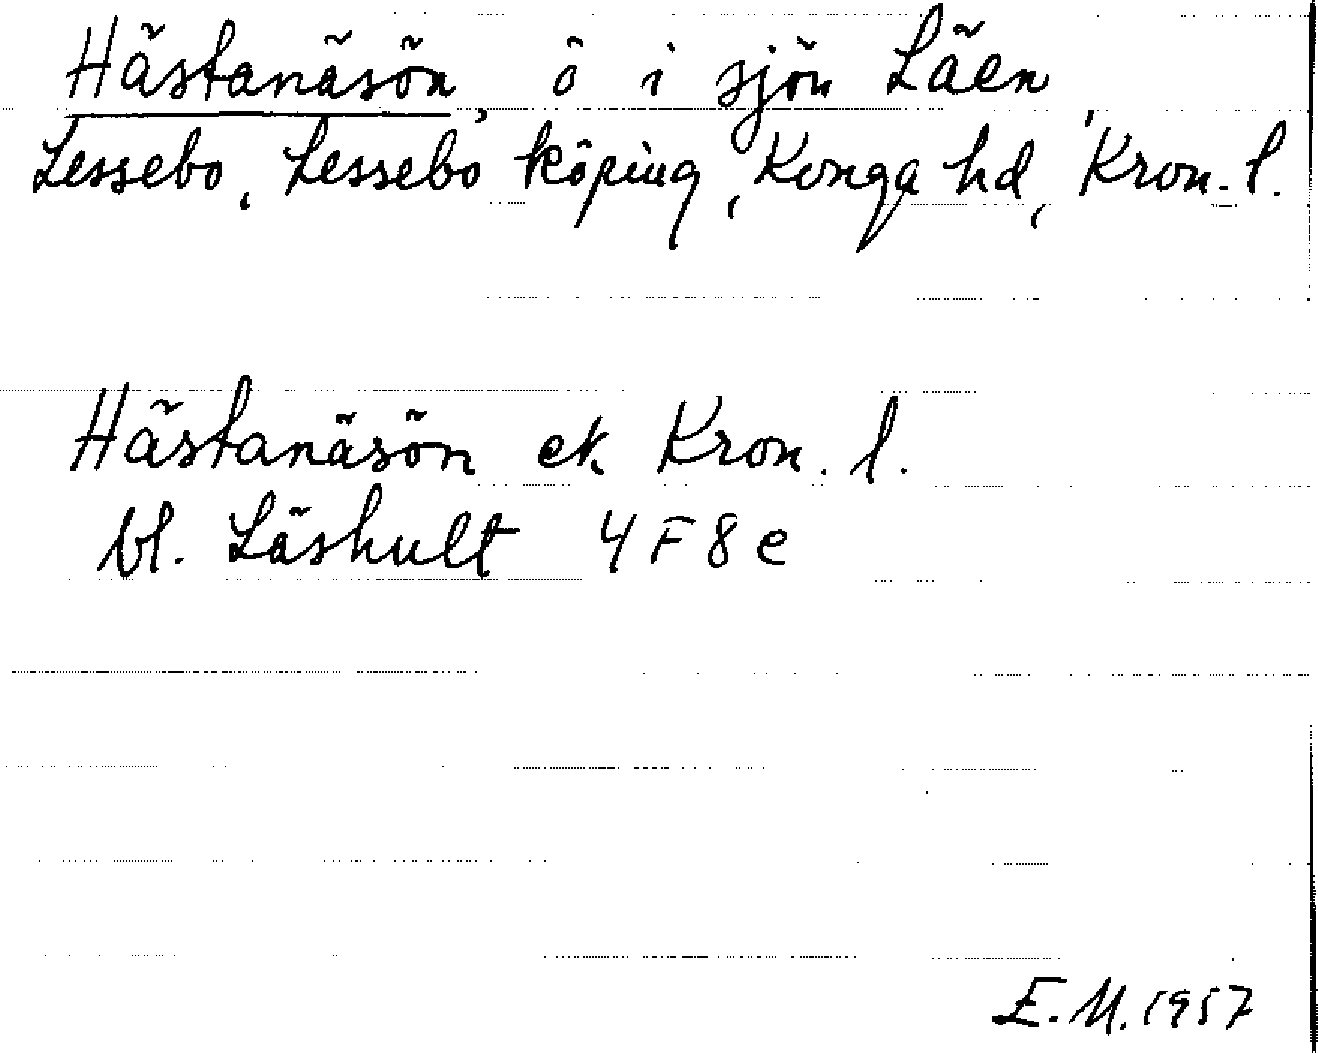 Hästanäsön, ö i sjön Läen,
Lessebo, Lessebo köping, Konga hd, Kron. l.
Hästanäsön ek Kron. l.
bl. Låshult 4F8e
E.M. 1957